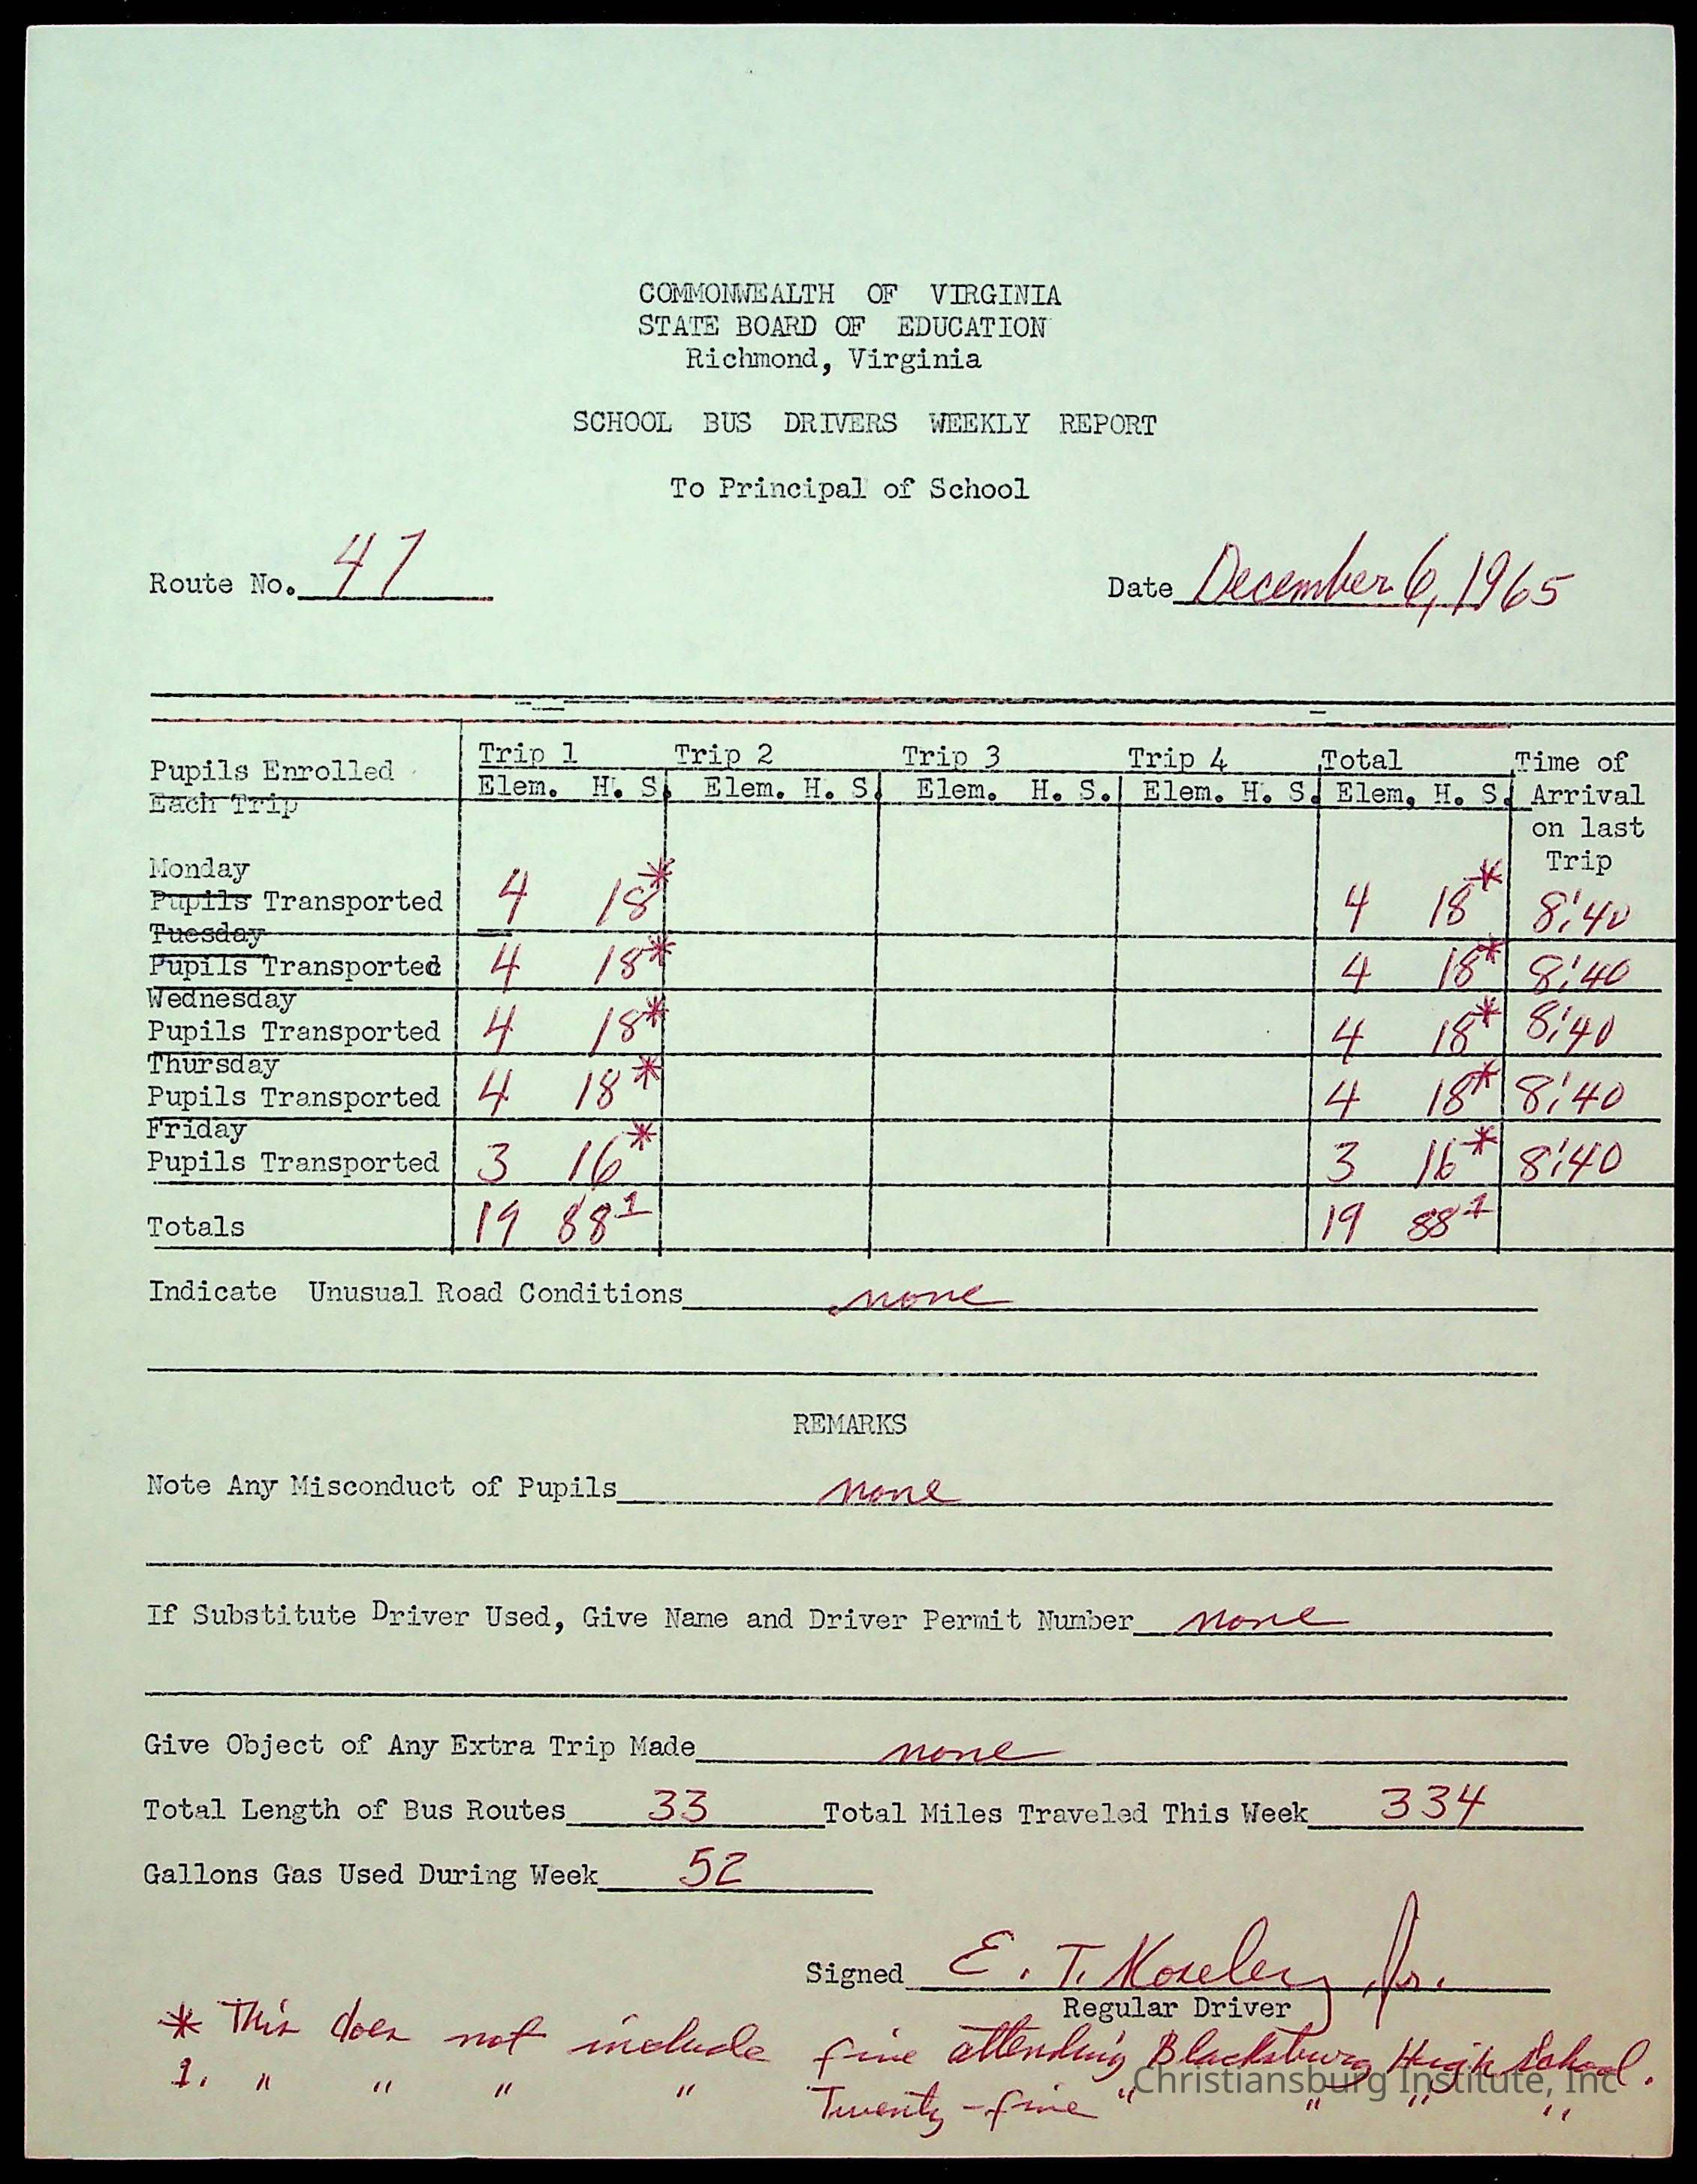 COMMONWEALTH OF VIRGINIA
STATE BOARD OF EDUCATION
Richmond, Virginia
SCHOOL BUS DRIVERS WEEKLY REPORT
To Principal of School
Route No. 47 Date December 6, 1965
Trip 1 Trip 2 Trip 3 Trip 4 Total Time of
Pupils Enrolled Elem. H. S. Elem. H. S. Elem. H. S. Elem. H. S. Elem. H. S. Arrival
Each Trip on last
Trip
Monday
Pupils Transported 4 18* 4 18* 8:40
Tuesday
Pupils Transported 4 18* 4 18* 8:40
Wednesday
Pupils Transported 4 18* 4 18* 8:40
Thursday
Pupils Transported 4 18* 4 18* 8:40
Friday
Pupils Transported 3 16* 3 16* 8:40
Totals 19 88¹ 19 88¹
Indicate Unusual Road Conditions none
REMARKS
Note Any Misconduct of Pupils none
If Substitute Driver Used, Give Name and Driver Permit Number none
Give Object of Any Extra Trip Made none
Total Length of Bus Routes 33 Total Miles Traveled This Week 334
Gallons Gas Used During Week 52
Signed E. T. Jr.
Regular Driver
* This does not include five attending Blacksburg High School.
1. " " " " Twenty-five " " " "
Christiansburg Institute, Inc